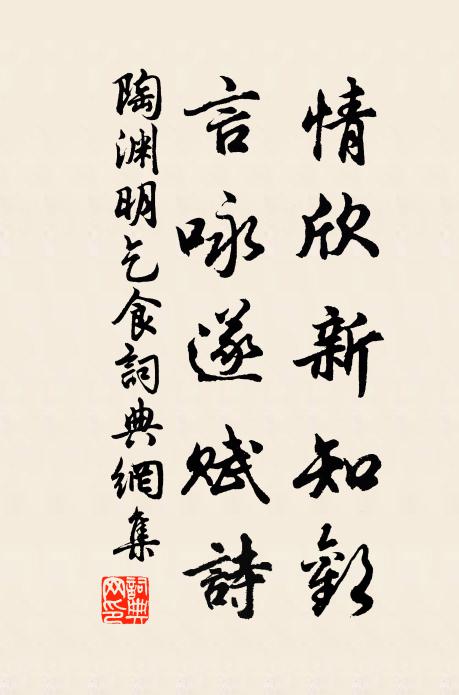 情欣新知歡
言咏遂賦詩
陶渊明乞食詞典網集
詞典网印